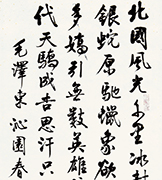 北國風光千里冰封
銀蛇原馳蠟象欲
多嬌引無數英雄
代天驕成吉思汗只
毛澤東沁園春